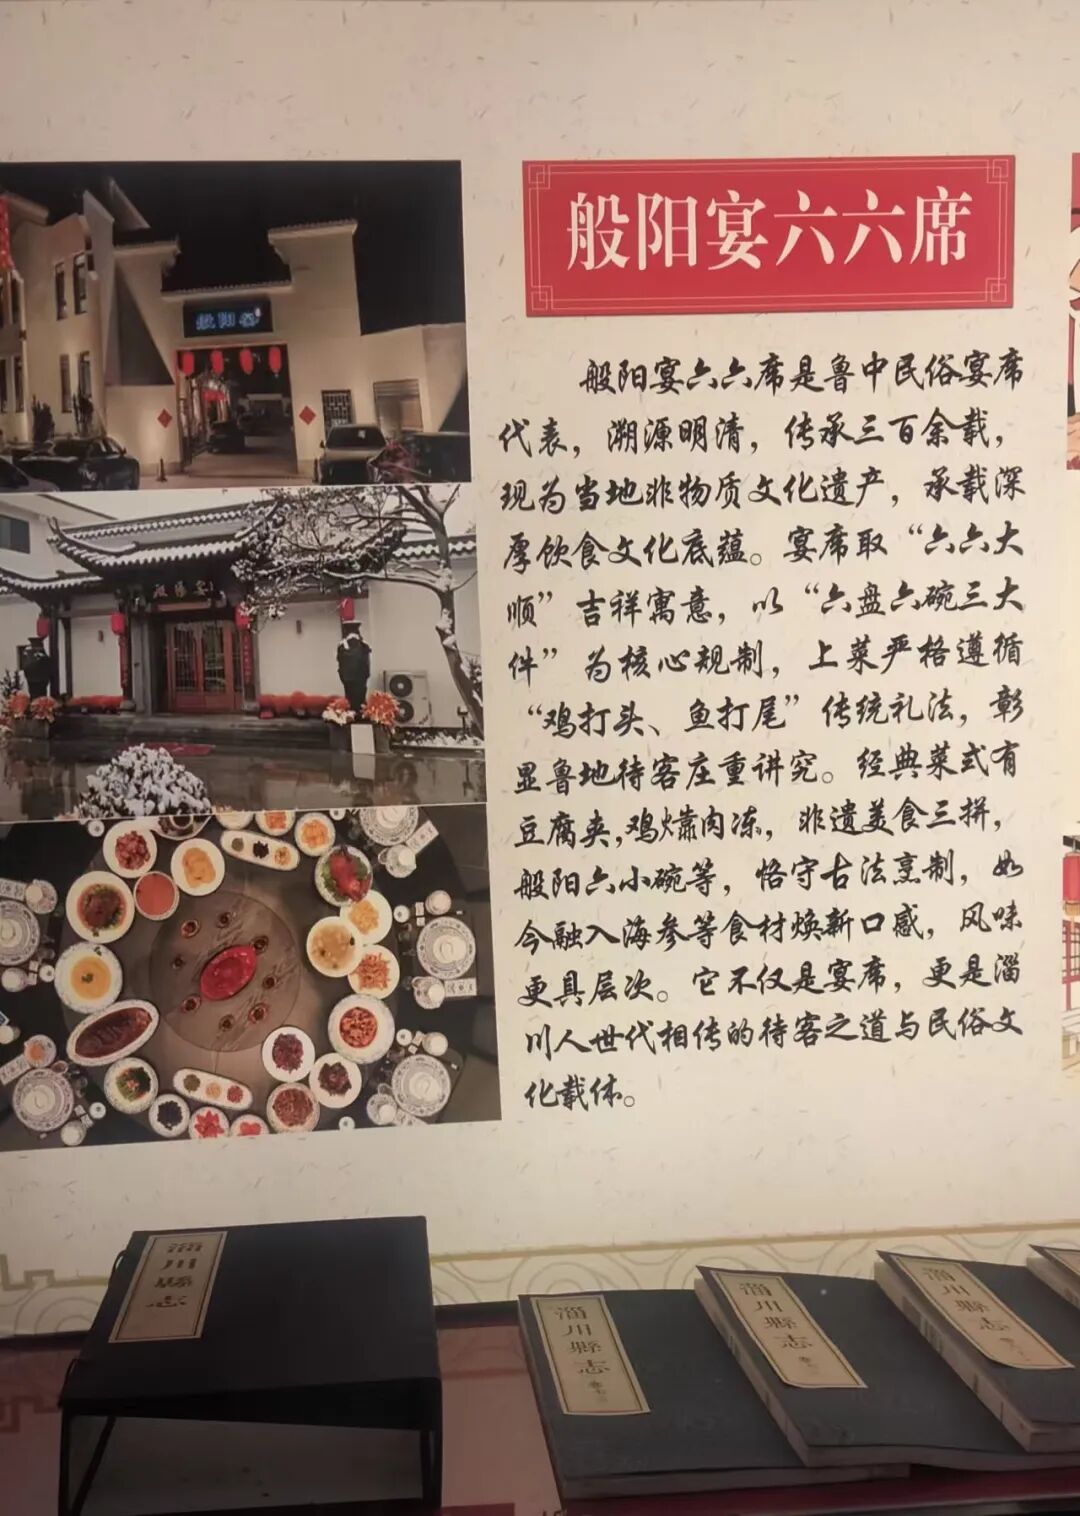 般阳宴六六席
般阳宴六六席是鲁中民俗宴席
代表，溯源明清，传承三百余载，
现为当地非物质文化遗产，承载深
厚饮食文化底蕴。宴席取“六六大
顺”吉祥寓意，以“六盘六碗三大
件”为核心规制，上菜严格遵循
“鸡打头、鱼打尾”传统礼法，彰
显鲁地待客庄重讲究。经典菜式有
豆腐夹,鸡㸆肉冻，非遗美食三拼，
般阳六小碗等，恪守古法烹制，如
今融入海参等食材焕新口感，风味
更具层次。它不仅是宴席，更是淄
川人世代相传的待客之道与民俗文
化载体。
般阳宴
般陽宴
淄川縣志
淄川縣志
淄川縣志
淄川縣志